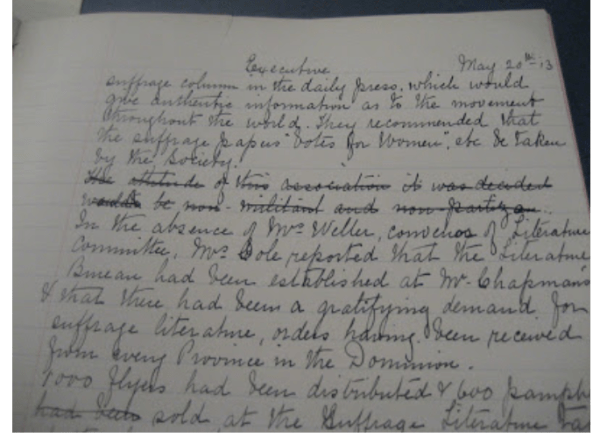 Executive May 20th 13
suffrage column in the daily press, which would
give authentic information as to the movement
throughout the world. They recommended that
the suffrage papers "Votes for Women", etc be taken
by the Society.
The attitude of this association it was decided
would be non-militant and non-partizan.
In the absence of Mrs Weller, convenor of Literature
Committee, Mrs Cole reported that the Literature
Bureau had been established at Mr. Chapman's
& that there had been a gratifying demand for
suffrage literature, orders having been received
from every Province in the Dominion.
1000 flyers had been distributed & 600 pamph
had been sold, at the Suffrage Literature Ta